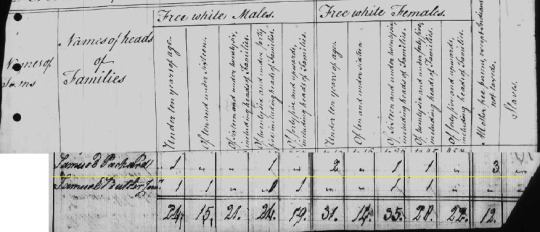 Free white Males. Free white Females.
Names of
Towns
Names of heads
of
Families
Under ten years of age.
Of ten and under sixteen.
Of sixteen and under twenty six, including heads of Families.
Of twenty six and under forty five including heads of Families.
Of forty five and upwards, including heads of Families.
Under ten years of age.
Of ten and under sixteen.
Of sixteen and under twenty six, including heads of Families.
Of twenty six and under forty five, including heads of Families.
Of forty five and upwards, including heads of Families.
All other free persons, except Indians not taxed.
Slaves.
Samuel 1 " " 1 " 2 " 1 1 " 3
Samuel Butler 1 1 " 1 1 " " 1 1 "
24, 15, 21. 24. 19. 31. 14. 35. 28. 22. 12.